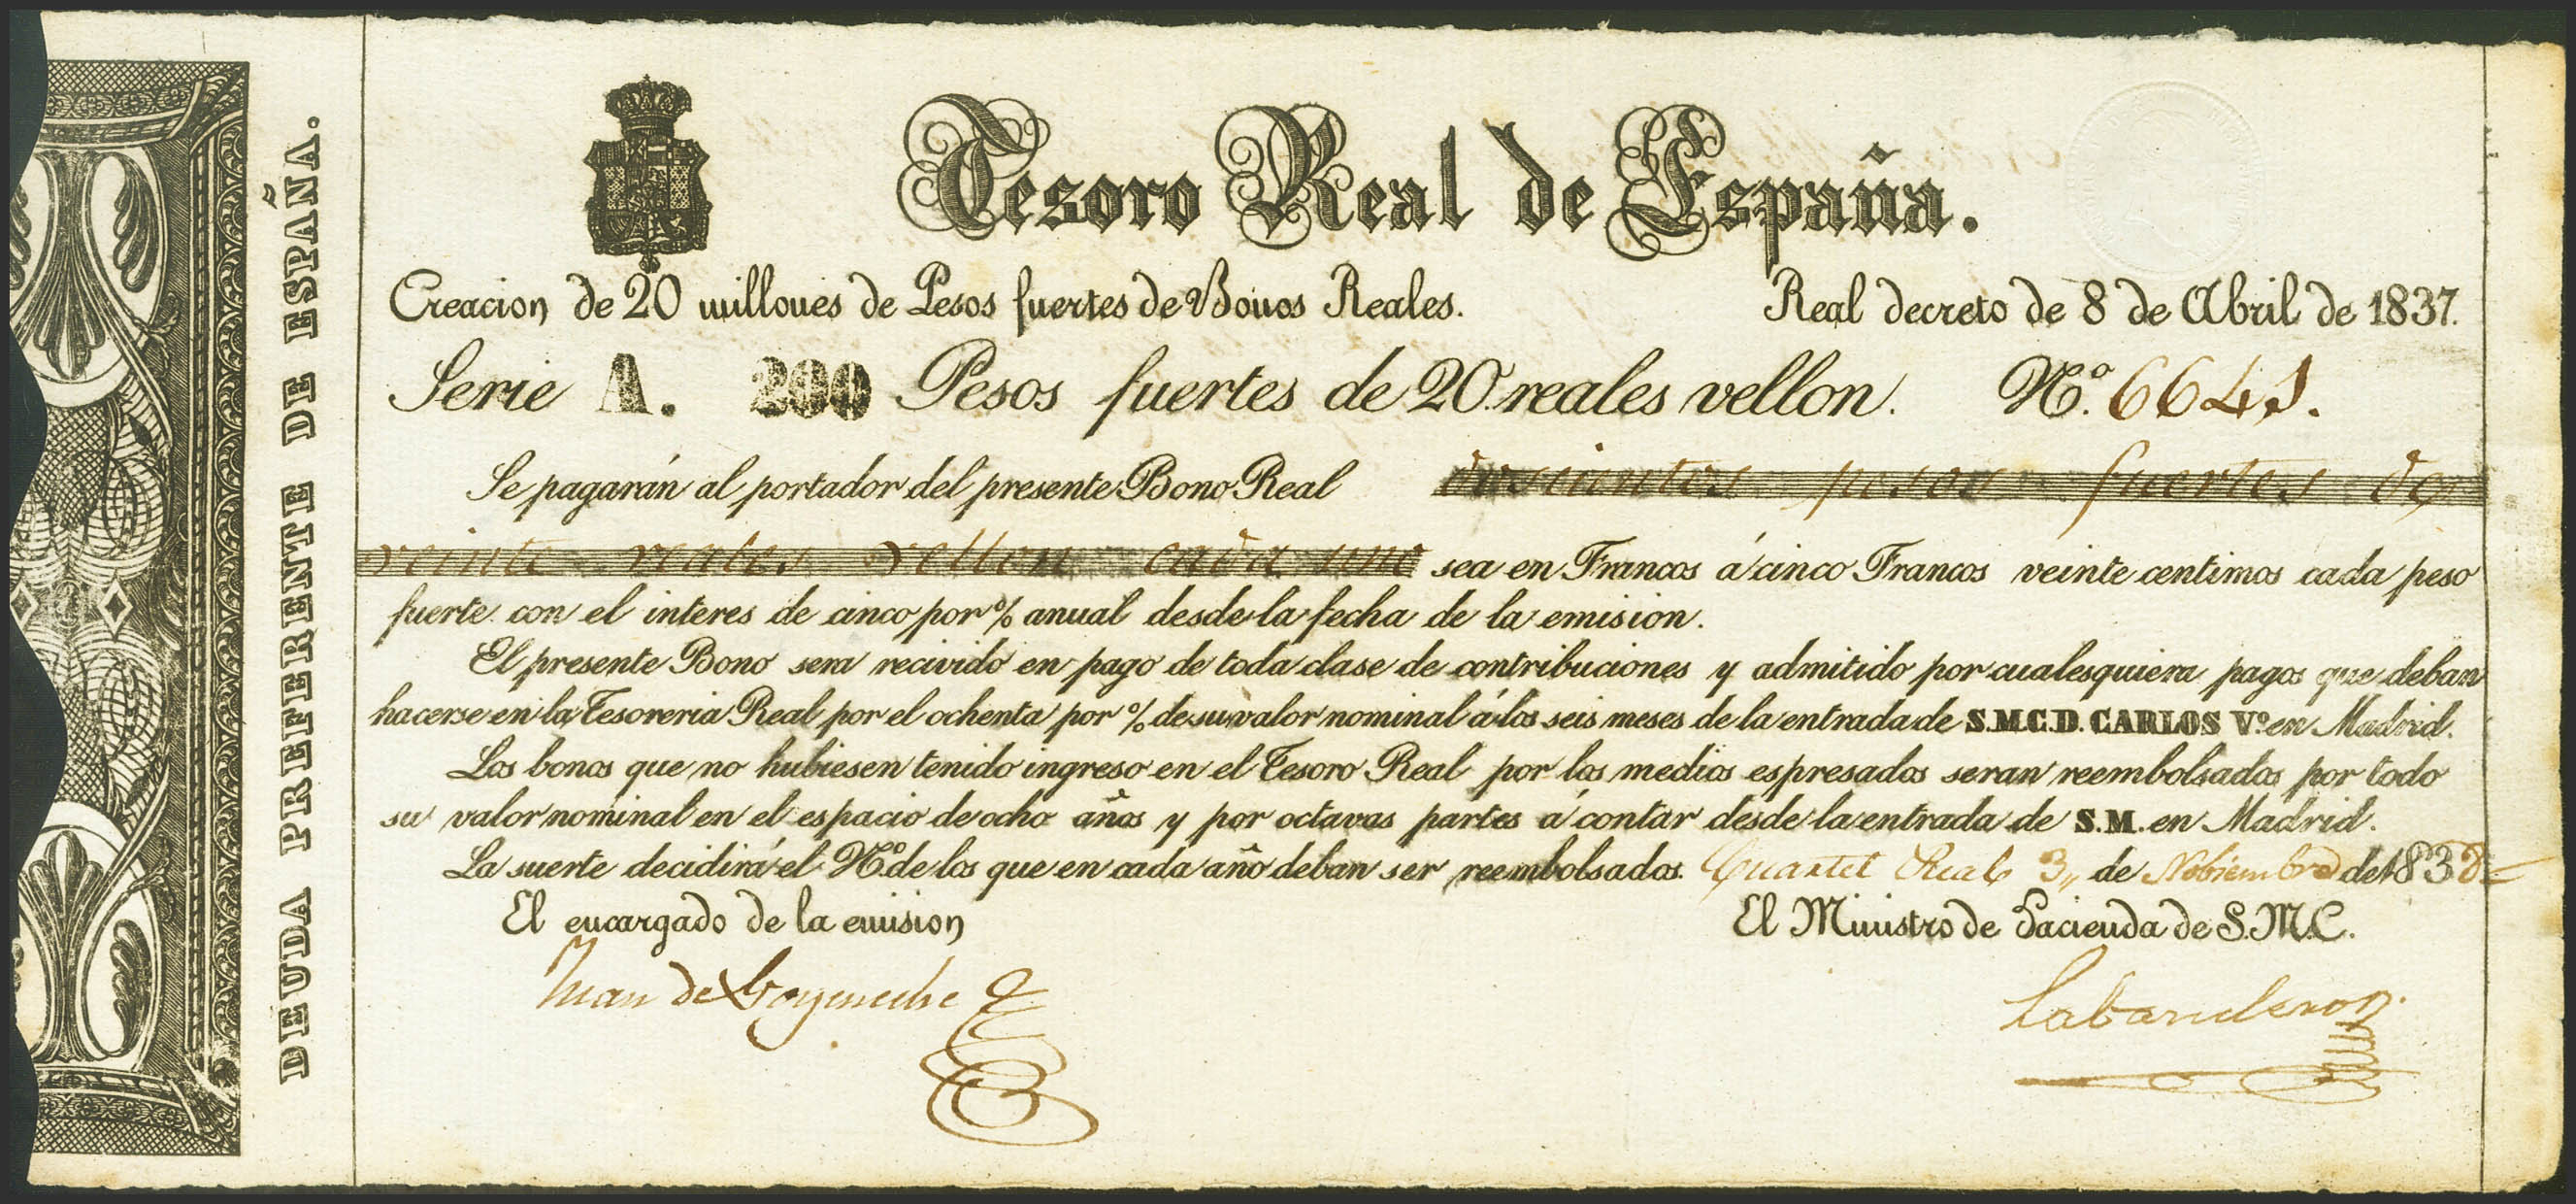 DEUDA PREFERENTE DE ESPAÑA.
Tesoro Real de España.
Creacion de 20 millones de Pesos fuertes de Bonos Reales. Real decreto de 8 de Abril de 1837.
Serie A. 200 Pesos fuertes de 20 reales vellon. Nº. 6641.
Se pagarán al portador del presente Bono Real doscientos pesos fuertes de
veinte reales vellon cada uno sea en Francos á cinco Francos veinte centimos cada peso
fuerte con el interes de cinco por % anual desde la fecha de la emision.
El presente Bono sera recivido en pago de toda clase de contribuciones y admitido por cualesquiera pagos que deban
hacerse en la Tesoreria Real por el ochenta por % de su valor nominal á los seis meses de la entrada de S.M.C.D. CARLOS Vº. en Madrid.
Los bonos que no hubiesen tenido ingreso en el Tesoro Real por los medios espresados seran reembolsados por todo
su valor nominal en el espacio de ocho años y por octavas partes á contar desde la entrada de S.M. en Madrid.
La suerte decidirá el Nº. de los que en cada año deban ser reembolsados. Cuartel Real 3,, de Nobiembre de 1838
El encargado de la emision El Ministro de Hacienda de S.M.C.
Juan de Goyeneche Labandero